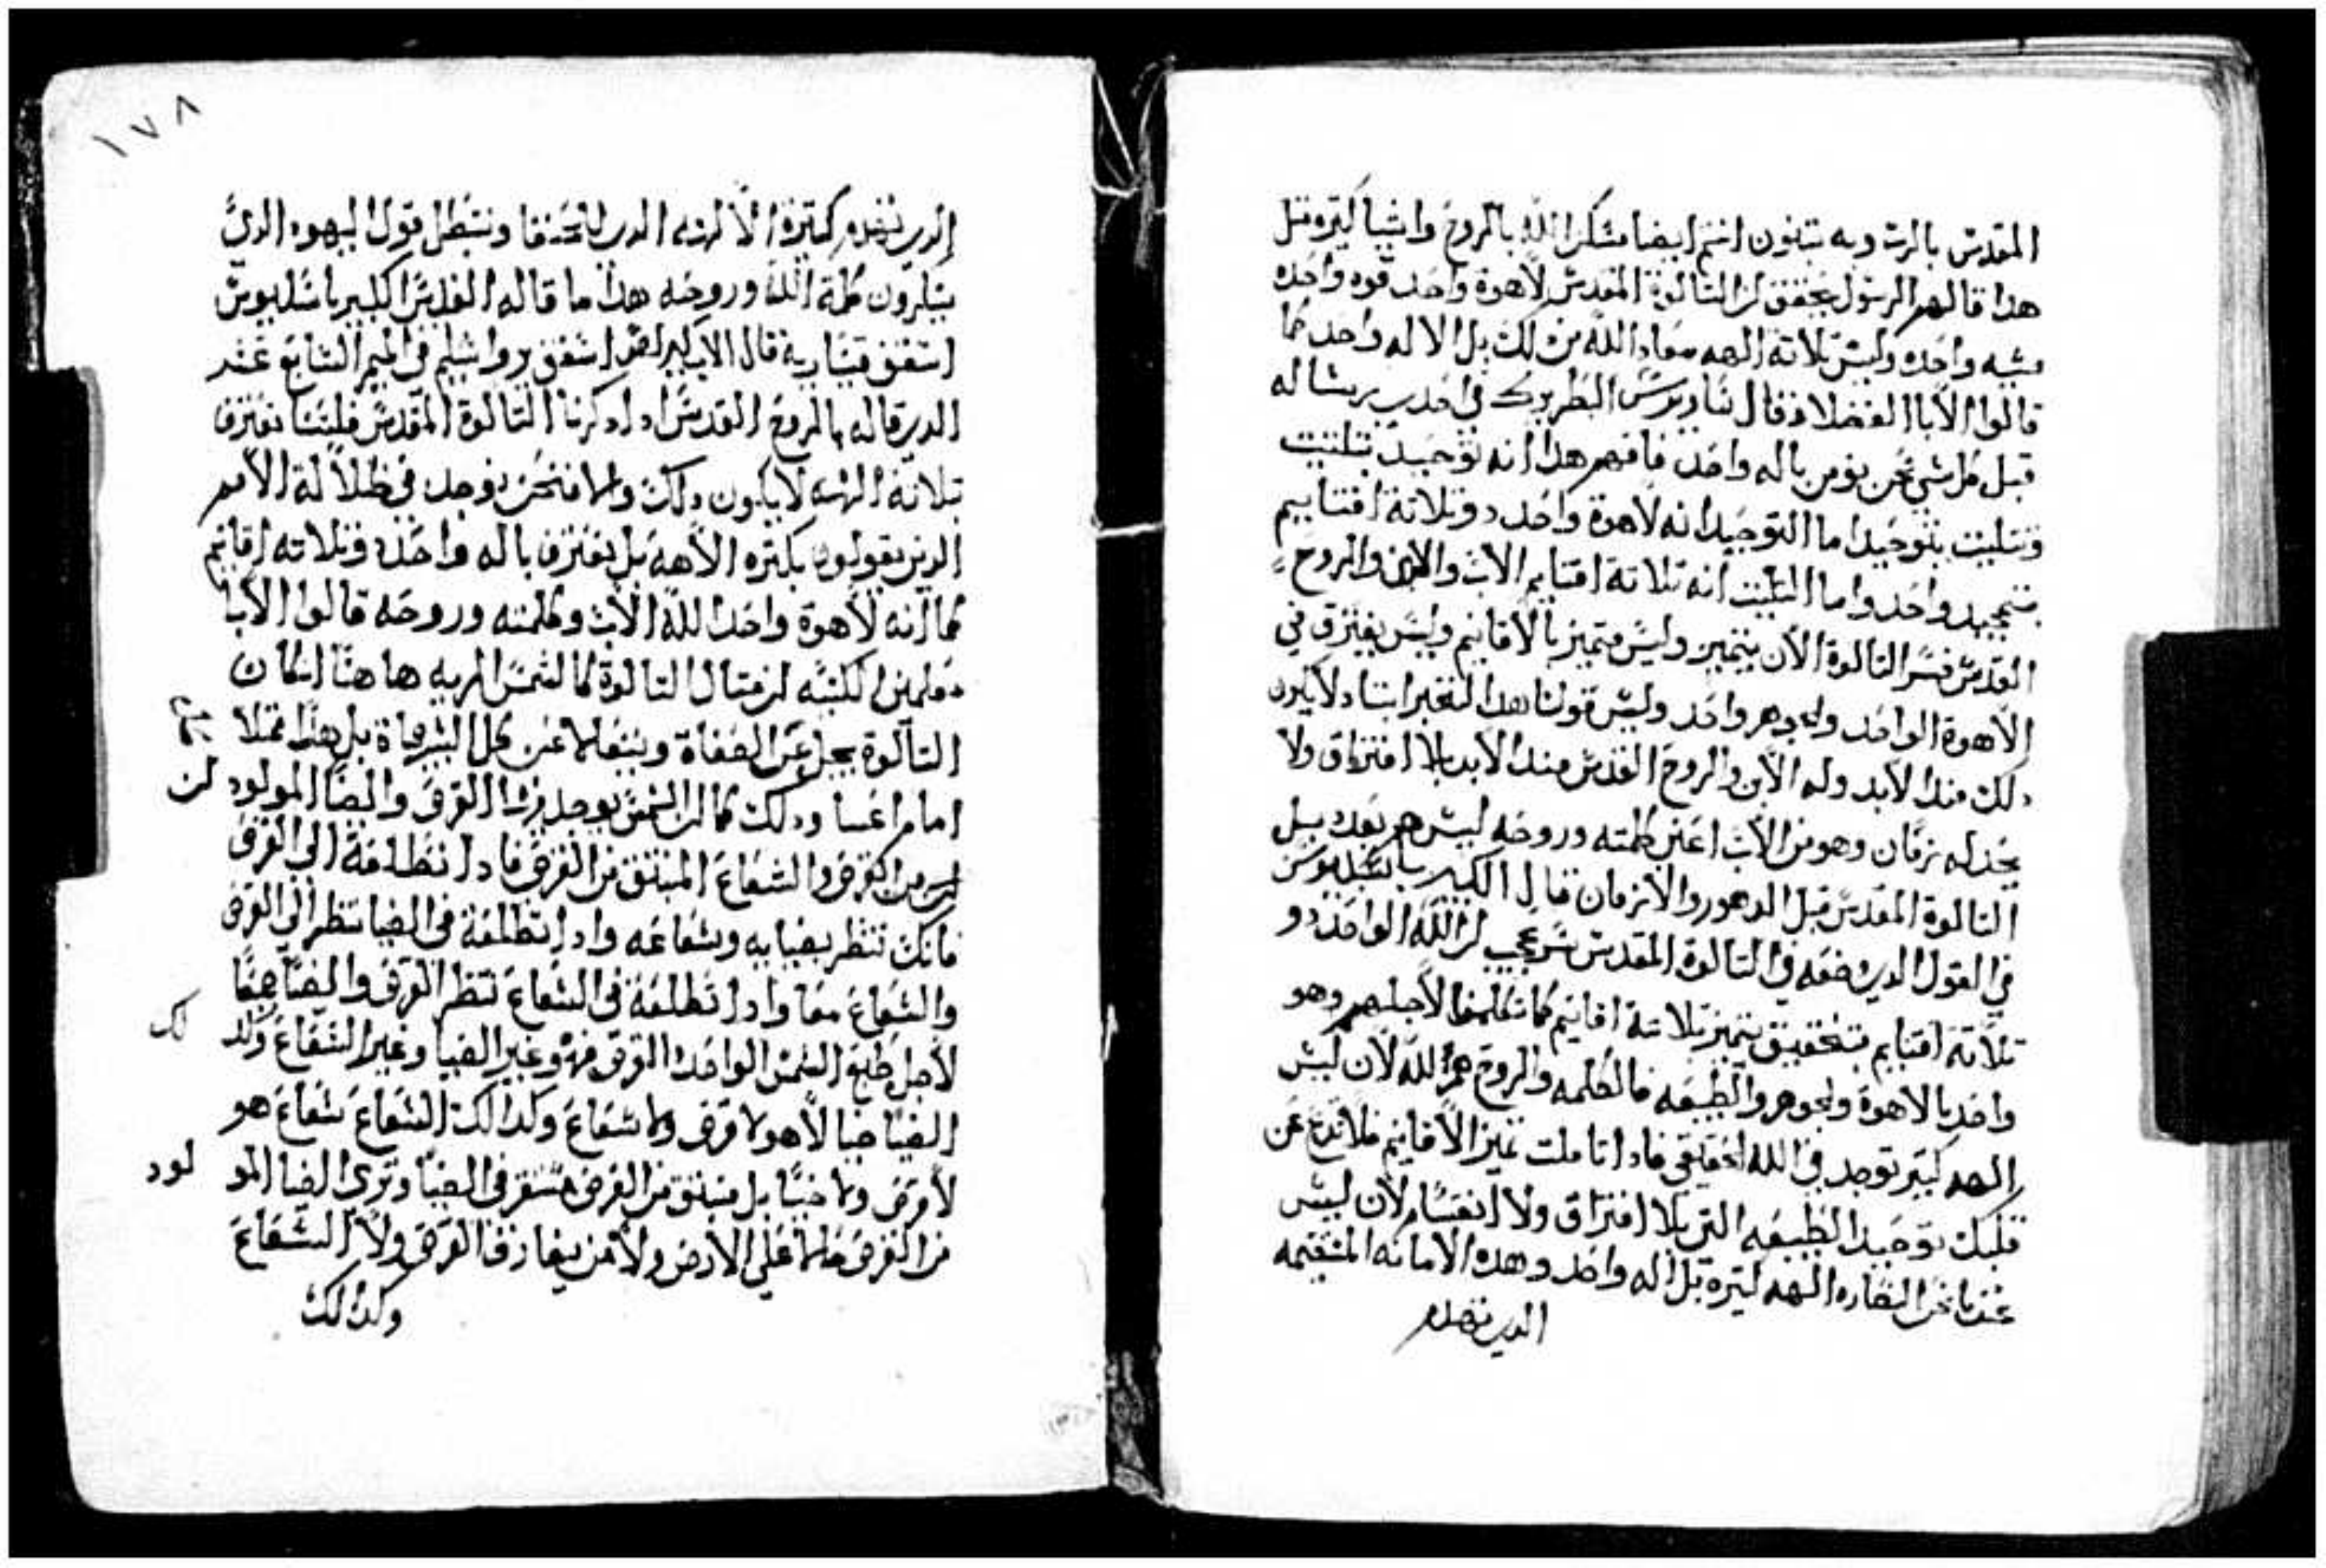 المقدس بالرب وبه تبنون انتم ايضا مسكن الله بالروح واشيا كتير ومتل
هدا قال لهم الرسول يحقق لنا التالوة المقدس لاهوة واحد قوه واحده
مشيه واحده وليس تلاتة الهه معاد الله من دلك بل الاله واحد كما
قالوا الابا الفضلا وقال تاودوسيس البطريرك في احدي رسايله
قبل كل شي نحن نومن باله واحد فافهم هدا انه توحيد بتلتيت
وتتليت بتوحيد اما التوحيد انه لاهوة واحد وتلاتة اقنايم
بتمجيد واحد واما التليت انه تلاتة اقنايم الاب والابن والروح
القدس فسر التالوة الان يتميز وليس متميز بالاقانيم وليس يفترق في
الاهوة الواحد والجوهر واحد وليس قولنا هدا التغير ابتدا لايكون
دلك مندا الابد وله الابن والروح القدس مندا الابد بلا افتراق ولا
يحد له زمان وهو من الاب اعني كلمته وروحه ليس هم بعده بل
التالوة المقدس قبل الدهور والازمان قال الكبير باسليوس
في القول الدي وضعه في التالوة المقدس سر عجيب لن الله الواحد دو
تلاتة اقنايم بتحقيق يتميز تلاتة اقانيم كما تكلمنا لاجلهم وهو
واحد بالاهوة والجوهر والطبيعه فالكلمه والروح هم الله لان ليس
الهه كتير توجد في الله الحقيقي فادا تاملت تميز الاقانيم فلا تدع عن
قلبك توحيد الطبيعه التي بلا افتراق ولا انقسام لان ليس
عندنا نحن النصاره الهه كتيرة بل اله واحد وهده الامانه المستقيمه
الدين تهدم
١٧٨
الدين تهدم كتيرة الالهه الدين للحنفا وتبطل قول اليهود الدي
ينكرون كلمة الله وروحه هدا ما قاله القديس الكبير باسليوس
اسقف قيسارية قال الاب كيرلص اسقف يروشليم في الميمر السابع عند
الدي قاله بالروح القدس ادا دكرنا التالوة المقدس فليسنا نعترف
تلاتة الهه لا يكون دلك والا فنحن نوجد في ظلالة الامم
الدين يقولون بكتره الاهه بل نعترف باله واحد وتلاته اقانيم
كما انه لاهوة واحد الله الاب وكلمته وروحه قالوا الابا
معلمين الكنيسه لن متال التالوة كالشمس المريه ها هنا انكان
التالوة يجل عن الصفاة ويتعالا عن كل البشرياة بل هدا متلا
اما ودلك كما لن الشمس يوجد فيها القرص والضيا المولود لن
من القرص والشعاع المنبتق من القرص فادا تطلعة الي القرص
فانك تنظر بضيايه وشعاعه وادا تطلعة في الضيا تنظر الي القرص
والشعاع معا وادا تطلعة في الشعاع تنظر القرص والضيا معا
لاجل طبع الشمس الواحد القرص فهو غير الضيا وغير الشعاع وكد لك
الضيا ضيا لا هو لا قرص ولا شعاع وكدالك الشعاع شعاع هو
لا قرص ولا ضيا بل منبتق من القرص مستقر في الضيا وتري الضيا المو لود
من القرص حالا علي الارض ولا من يفارق القرص ولا الشعاع
وكدالك